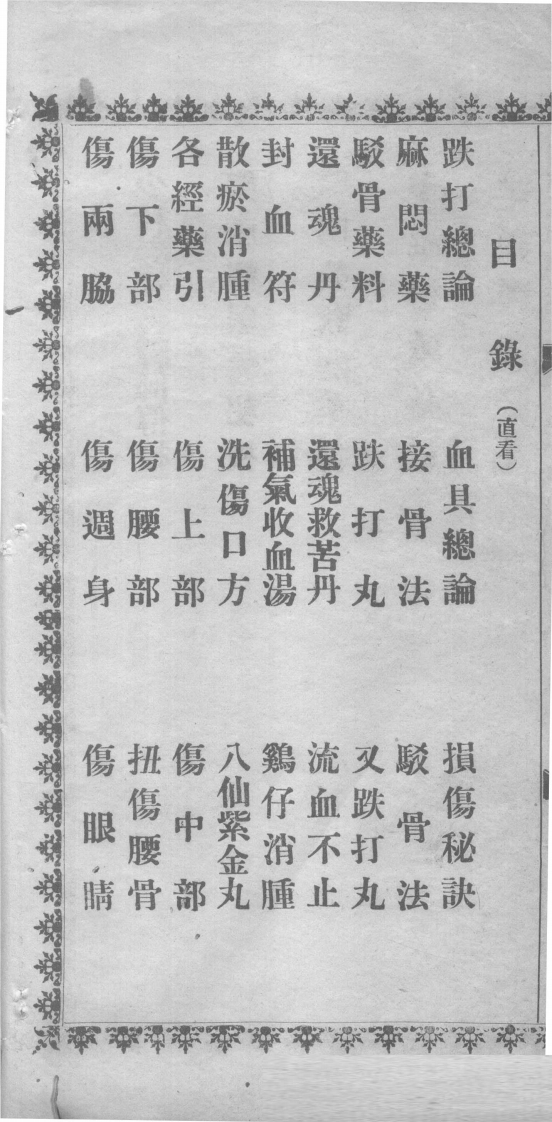 目錄（直看）
跌打總論　血具總論　損傷秘訣
麻悶藥　接骨法　駁骨法
駁骨藥料　跌打丸　又跌打丸
還魂丹　還魂救苦丹　流血不止
封血符　補氣收血湯　鷄仔消腫
散瘀消腫　洗傷口方　八仙紫金丸
各經藥引　傷上部　傷中部
傷下部　傷腰部　扭傷腰骨
傷兩脇　傷週身　傷眼睛